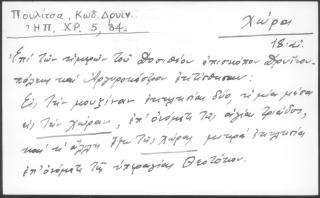 Πουλίτσα, Κωδ. Δρυϊν.
ΗΠ. ΧΡ. 5, 84.
Χώραι
18 αἰ.
Ἐπὶ τῶν ἡμερῶν τοῦ Δοσιθέου ἐπισκόπου Δρυϊνου-
πόλεως καὶ Ἀργυροκάστρου ἐκτίσθησαν:
Εἰς τὴν Μουζίναν ἐκκλησίαι δύο, ἡ μία μέσα
εἰς τὴν Χώραν, ἐπ' ὀνόματι τῆς ἁγίας Τριάδος,
καὶ ἡ ἄλλη ἔξω τῆς χώρας μικρὰ ἐκκλησία
ἐπ' ὀνόματι τῆς ὑπεραγίας Θεοτόκου.